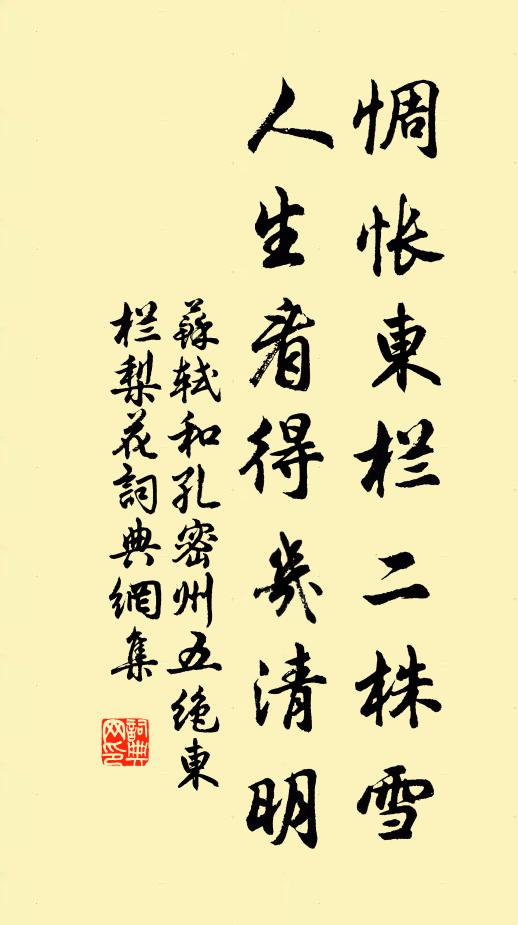 惆怅東栏二株雪
人生看得幾清明
蘇轼和孔密州五绝東
栏梨花詞典網集
詞典
网印